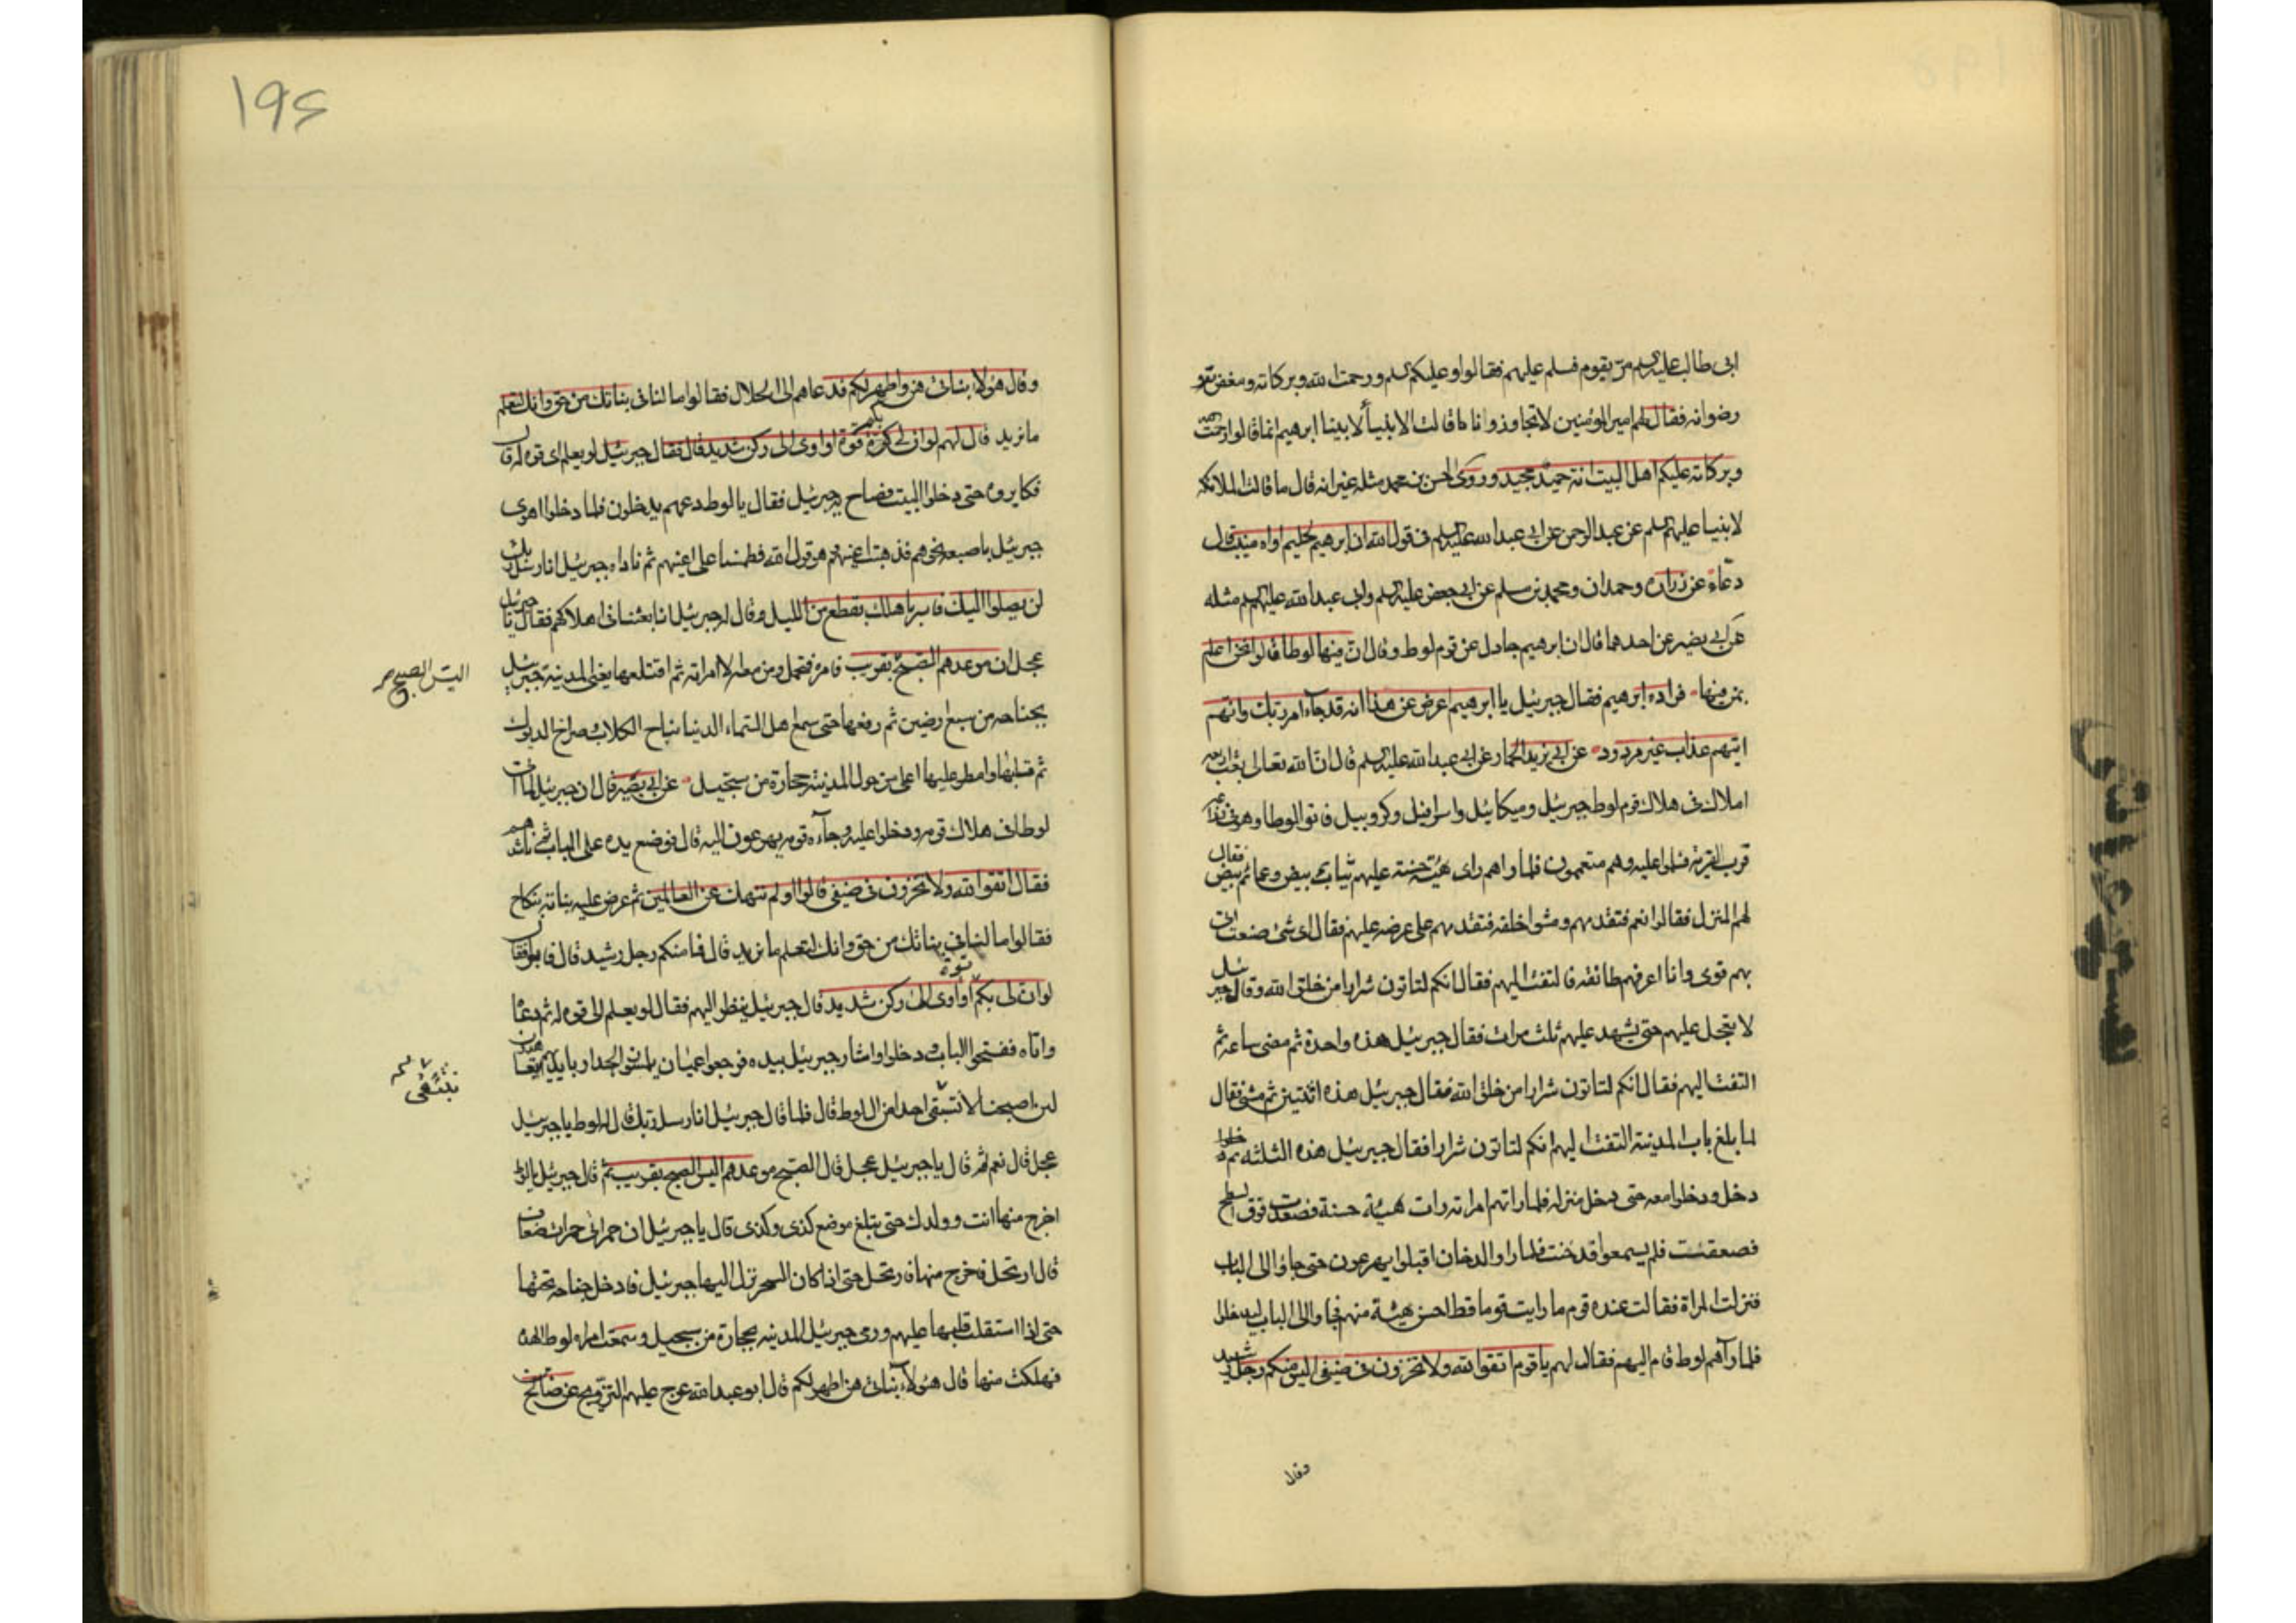 ابى طالب عليه السلم مرّ بقوم فسلم عليهم فقالوا وعليكم السلم ورحمت الله وبركاته ومغفرته و
رضوانه فقال لهم امير المؤمنين لا تجاوزوا بنا ما قالت الانبياء لابينا ابرهيم انما قالوا رحمت الله
وبركاته عليكم اهل البيت انه حميد مجيد وروى الحسن بن محمد مثله غير انه قال ما قالت الملائكه
لابينا عليهم السلم عن عبد الرحمن عن ابى عبد الله عليه السلم فى قول الله ان ابرهيم لحليم اواه منيب قال
دعّاء عن زراره وحمران ومحمد بن مسلم عن ابى جعفر عليه السلم وابى عبد الله عليهم السلم مثله
عن ابى بصير عن احدهما قال ان ابرهيم جادل عن قوم لوط وقال ان فيها لوطا قالوا نحن اعلم
بمن فيها فزاده ابرهيم فقال جبرئيل يا ابرهيم اعرض عن هذا انه قد جاء امر ربك وانهم
اتيهم عذاب غير مردود عن ابى يزيد الحمار عن ابى عبد الله عليه السلم قال ان الله تعالى بعث اربعه
املاك فى هلاك قوم لوط جبرئيل وميكائيل واسرافيل وكروبيل فاتوا لوطا وهو فى زراعه
قرب القرية فسلموا عليه وهم متعممون فلما راهم راى هيئة حسنة عليهم ثياب بيض وعمائم بيض فقال
لهم المنزل فقالوا نعم فتقدمهم ومشوا خلفه فتقدمهم على عرضه عليهم فقال اى شئ صنعت اتى
بهم قومى وانا اعرفهم فالتفت اليهم فقال انكم لتاتون شرارا من خلق الله وقال جبرئيل
لا يعجل عليهم حتى يشهد عليهم ثلث مرات فقال جبرئيل هذه واحدة ثم مضى ساعة ثم
التفت اليهم فقال انكم لتاتون شرارا من خلق الله فقال جبرئيل هذه اثنتين ثم مشى فقال
لما بلغ باب المدينة التفت اليهم انكم لتاتون شرارا فقال جبرئيل هذه الثلثه ثم دخلوا
دخل ودخلوا معه حتى دخل منزله فلما راتهم امراته رات هيئة حسنة فصعدت فوق السطح
فصعقت فلم يسمعوا فدخنت فلما راوا الدخان اقبلوا يهرعون حتى جاؤا الى الباب
فنزلت المراة فقالت عنده قوم ما رايت قوما قط احسن هيئة منهم فجاوا الى الباب ليدخلوا
فلما رآهم لوط قام اليهم فقال لهم يا قوم اتقوا الله ولا تخزون فى ضيفى اليس منكم رجل رشيد
وقال
۱۹۶
وقال هؤلا بناتى هن واطهر لكم فدعاهم الى الحلال فقالوا ما لنا فى بناتك من حق وانك لتعلم
ما نريد قال لهم لو ان لى بكم قوة او اوى الى ركن شديد قال فقال جبرئيل لو يعلم اى قوه له قال
فكابروه حتى دخلوا البيت فصاح به جبرئيل فقال يا لوط دعهم يدخلون فلما دخلوا اهوى
جبرئيل باصبعه نحوهم فذهبت اعينهم وهو قول الله فطمسنا على اعينهم ثم ناداه جبرئيل انا رسل ربك
لن يصلوا اليك فاسر باهلك بقطع من الليل وقال له جبرئيل انا بعثنا فى اهلاكهم فقال يا جبرئيل
عجل ان موعدهم الصبح بقريب فامره فتحمل ومن معه الا امراته ثم اقتلعها يعنى المدينة جبرئيل
اليس الصبح صح
بجناحه من سبع ارضين ثم رفعها حتى سمع اهل السماء الدنيا نباح الكلاب وصراخ الديوك
ثم قلبها وامطر عليها اعلى من حول المدينة حجارة من سجيل عن ابى بصير قال ان جبرئيل لما اتى
لوطا فى هلاك قومه ودخلوا عليه وجآءه قومه يهرعون اليه قال فوضع يده على الباب ثم ناشدهم
فقال اتقوا الله ولا تخزون فى ضيفى قالوا اولم ننهك عن العالمين ثم عرض عليه بناته بنكاح
فقالوا ما لنا فى بناتك من حق وانك لتعلم ما نريد قال فما منكم رجل رشيد قال فابوا فقال
لو ان لى بكم قوة او اوى الى ركن شديد قال جبرئيل ينظر اليهم فقال لو يعلم اى قوه له ثم دعا
واتاه ففتحوا الباب ودخلوا واشار جبرئيل بيده فرجعوا عميان يلتمسون الجدار بايديهم يعاهدون
لئن اصبحنا لا نستبقى احدا من ال لوط قال فلما قال جبرئيل انا رسل ربك قال له لوط يا جبرئيل
نستبقى
عجل قال نعم ثم قال يا جبرئيل عجل قال الصبح موعدهم اليس الصبح بقريب ثم قال جبرئيل يا لوط
اخرج منها انت وولدك حتى يبلغ موضع كذى وكذى قال يا جبرئيل ان حمراتى حمرات ضعاف
قال ارتحل فاخرج منها فارتحل حتى اذا كان السحر نزل اليها جبرئيل فادخل جناحه تحتها
حتى اذا استقلت قلبها عليهم ورمى جبرئيل المدينه بحجارة من سجيل وسمعت امراه لوط الهده
فهلكت منها قال هؤلاء بناتى هن اطهر لكم قال ابو عبد الله عرج عليهم التزويج عن صالح